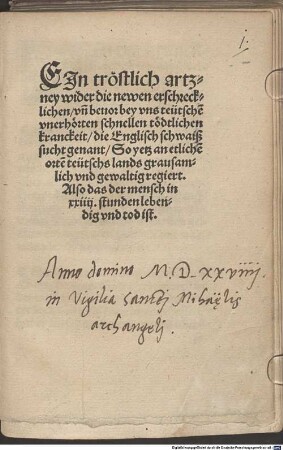 1.
EIn tröstlich artz-
ney wider die newen erschreck-
lichen/vñ beuor bey vns teütschē
vnerhörten schnellen tödtlichen
kranckeit/die Englisch schwaiß
sucht genant/So yetz an etlichē
ortē teütschs lands grausam-
lich vnd gewaltig regiert.
Also das der mensch in
xxiiij. stunden leben-
dig vnd tod ist.
Anno domino M.D.xxviiij.
in Vigilia sancti Mihaëlis
archangelj.